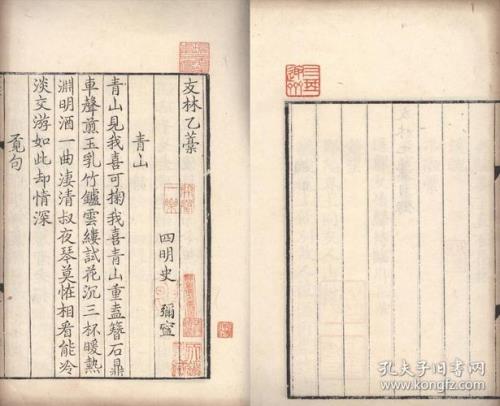 友林乙藁
四明史 彌寧
青山
青山見我喜可掬我喜青山重盍簪石鼎
車聲煎玉乳竹鑪雲縷試花沉三杯暖熱
淵明酒一曲淒清叔夜琴莫恠相看能冷
淡交游如此却情深
覓句
孔夫子旧书网